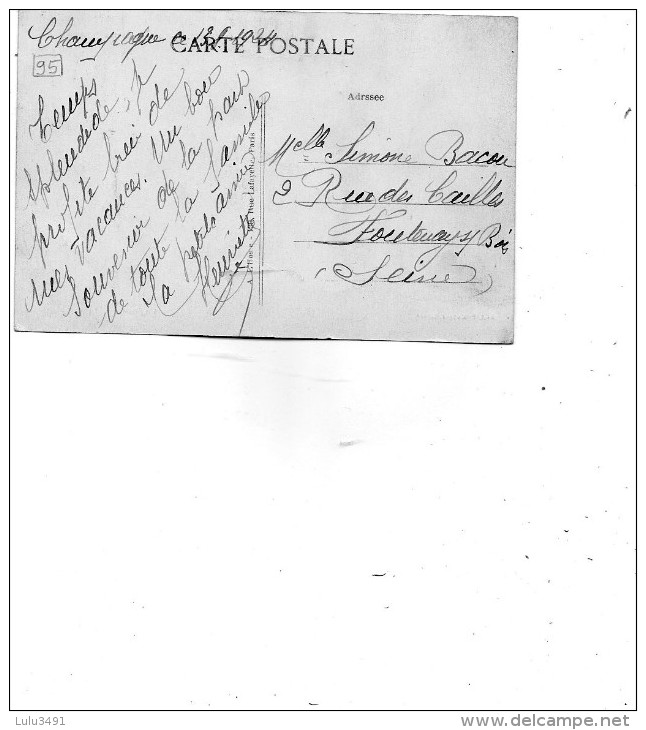 Champagne 1924
CARTE POSTALE
95
Adrssee
Temps
splendide, je
profite bien de
mes vacances. Un bon
souvenir de la part
de toute la famille
Ta petite amie
Henriette
Rue Lafayette, Paris
Melle Simone Bacou
2 Rue des Cailles
Fontenay s/ Bois
(Seine)
Lulu3491